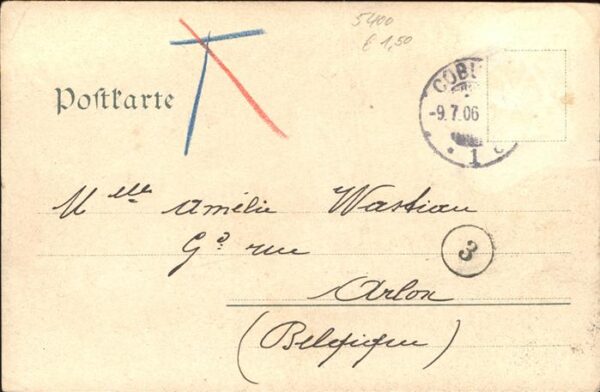 5400
€ 1,50
T
COBU
-9.7.06
1
Postkarte
Mlle Amélie Wastian
Gde rue
3
Arlon
(Belgique)